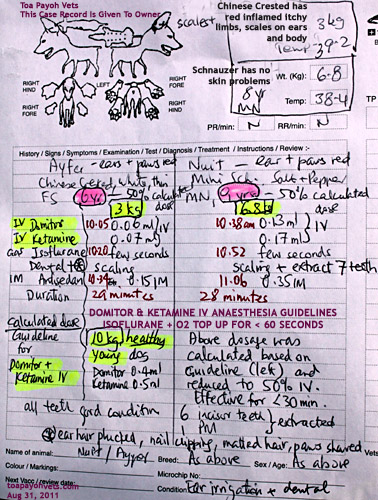 Toa Payoh Vets
This Case Record Is Given To Owner
scales+
Chinese Crested has
red inflamed itchy
limbs, scales on ears
and body
3 kg
Temp 39.2
Schnauzer has no
skin problems
8 yr
MN
Wt. (Kg): 6.8
Temp: 38.4
PR/min: N RR/min: N
RIGHT HIND
LEFT
RIGHT HIND
RIGHT FORE
RIGHT FORE
TP
History / Signs / Symptoms / Examination / Test / Diagnosis / Treatment / Instructions / Review :-
- ears + paws red
Nuit - ear + paws red
Chinese Crested, white, thin
Mini Sch. Salt + Pepper
FS 6 yr - 50% calculated dose
MN, 9 yrs - 50% calculated dose
3 kg
6.8 kg
IV Domitor 10.05 0.06 ml } IV
10.38am 0.13 ml } IV
IV Ketamine 0.07 ml
0.17 ml
gas Isoflurane 1020 few seconds
10.52 few seconds
Dental + scaling
scaling + extract 7 teeth
IM Antisedan 10.34 0.15 IM
11.06 0.35 IM
Duration 29 minutes
28 minutes
DOMITOR & KETAMINE IV ANAESTHESIA GUIDELINES
ISOFLURANE + O2 TOP UP FOR < 60 SECONDS
Calculated dose
Guideline
for
Domitor +
Ketamine IV
10 kg healthy
young dog
Domitor 0.4ml
Ketamine 0.5ml
Above dosage was
calculated based on
Guideline (left) and
reduced to 50% IV.
Effective for <30 min.
all teeth good condition
6 incisor teeth } extracted
1 PM
ear hair plucked, nail clipping, matted hair, paws shaved
Name of animal: Nuit /
Breed: As above
Sex / Age: As above
Vets
Colour / Markings:
Microchip No:
Next Vacc / review date:
Condition: Ear irrigation + dental
toapayohvets.com
Aug 31, 2011